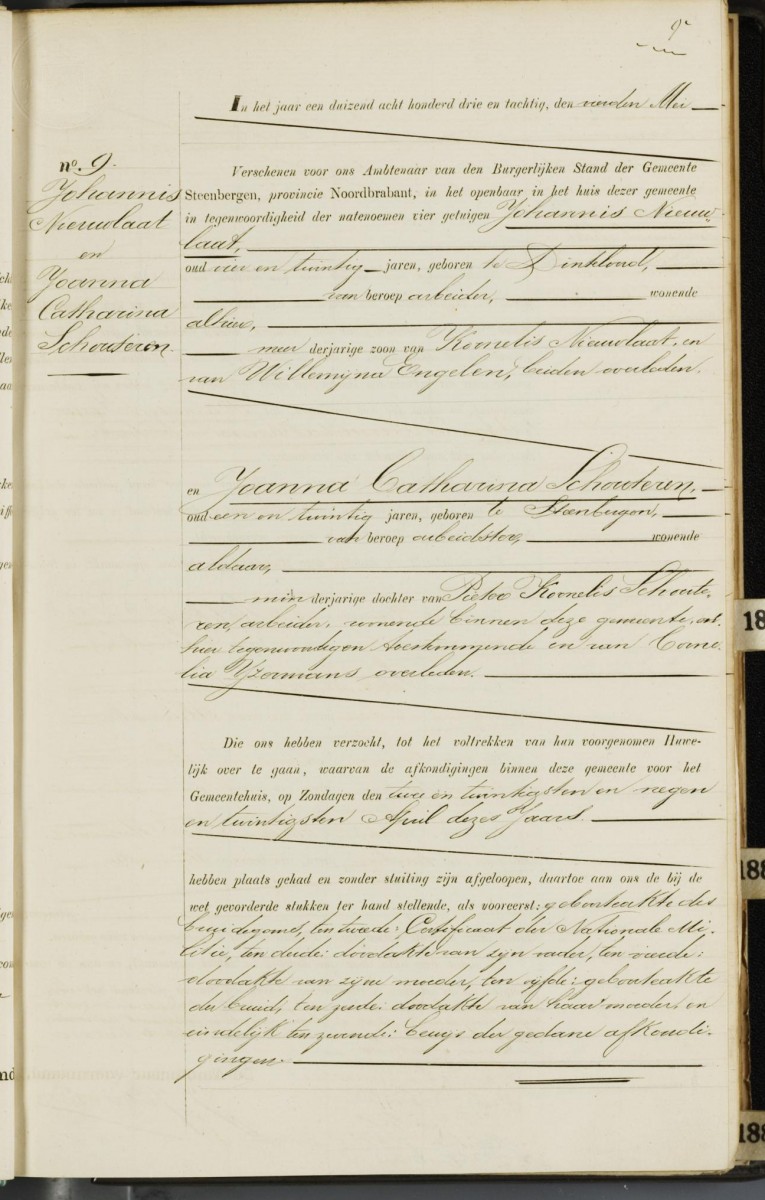 9
nº. 9.
Johannis
Nieuwlaat
en
Joanna
Catharina
Schouteren.
In het jaar een duizend acht honderd drie en tachtig, den vierden Mei
Verschenen voor ons Ambtenaar van den Burgerlijken Stand der Gemeente
Steenbergen, provincie Noordbrabant, in het openbaar in het huis dezer gemeente
in tegenwoordigheid der natenoemen vier getuigen Johannis Nieuw-
laat,
oud vier en twintig jaren, geboren te Dinteloord,
van beroep arbeider, wonende
alhier,
meer derjarige zoon van Kornelis Nieuwlaat, en
van Willemijna Engelen, beiden overleden.
en Joanna Catharina Schouteren,
oud een en twintig jaren, geboren te Steenbergen,
van beroep arbeidster, wonende
aldaar,
min derjarige dochter van Pieter Kornelis Schoute-
ren, arbeider, wonende binnen deze gemeente, en
hier tegenwoordigen toestemmende en van Corne-
lia IJzermans overleden.
Die ons hebben verzocht, tot het voltrekken van hun voorgenomen Huwe-
lijk over te gaan, waarvan de afkondigingen binnen deze gemeente voor het
Gemeentehuis, op Zondagen den twee en twintigsten en negen
en twintigsten April dezes Jaars
hebben plaats gehad en zonder stuiting zijn afgeloopen, daartoe aan ons de bij de
wet gevorderde stukken ter hand stellende, als vooreerst: geboorteakte des
bruidegoms, ten tweede: Certificaat der Nationale Mi-
litie, ten derde: doodakte van zijn vader, ten vierde:
doodakte van zijne moeder, ten vijfde: geboorteakte
der bruid, ten zesde: doodakte van haar moeder, en
eindelijk ten zevende: bewijs der gedane afkondi-
gingen
18
188
188